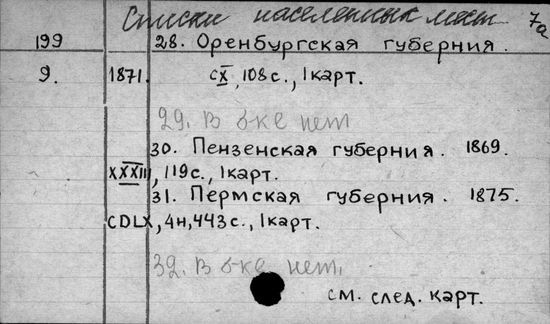 Списки населенных мест 7а
199 28. Оренбургская губерния.
9. 1871. CX, 108 с., 1 карт.
29. В б-ке нет
30. Пензенская губерния. 1869.
XXXIII, 119 с., 1 карт.
31. Пермская губерния. 1875.
CDLX, 4н, 443 с., 1 карт.
32. В б-ке нет.
см. след. карт.